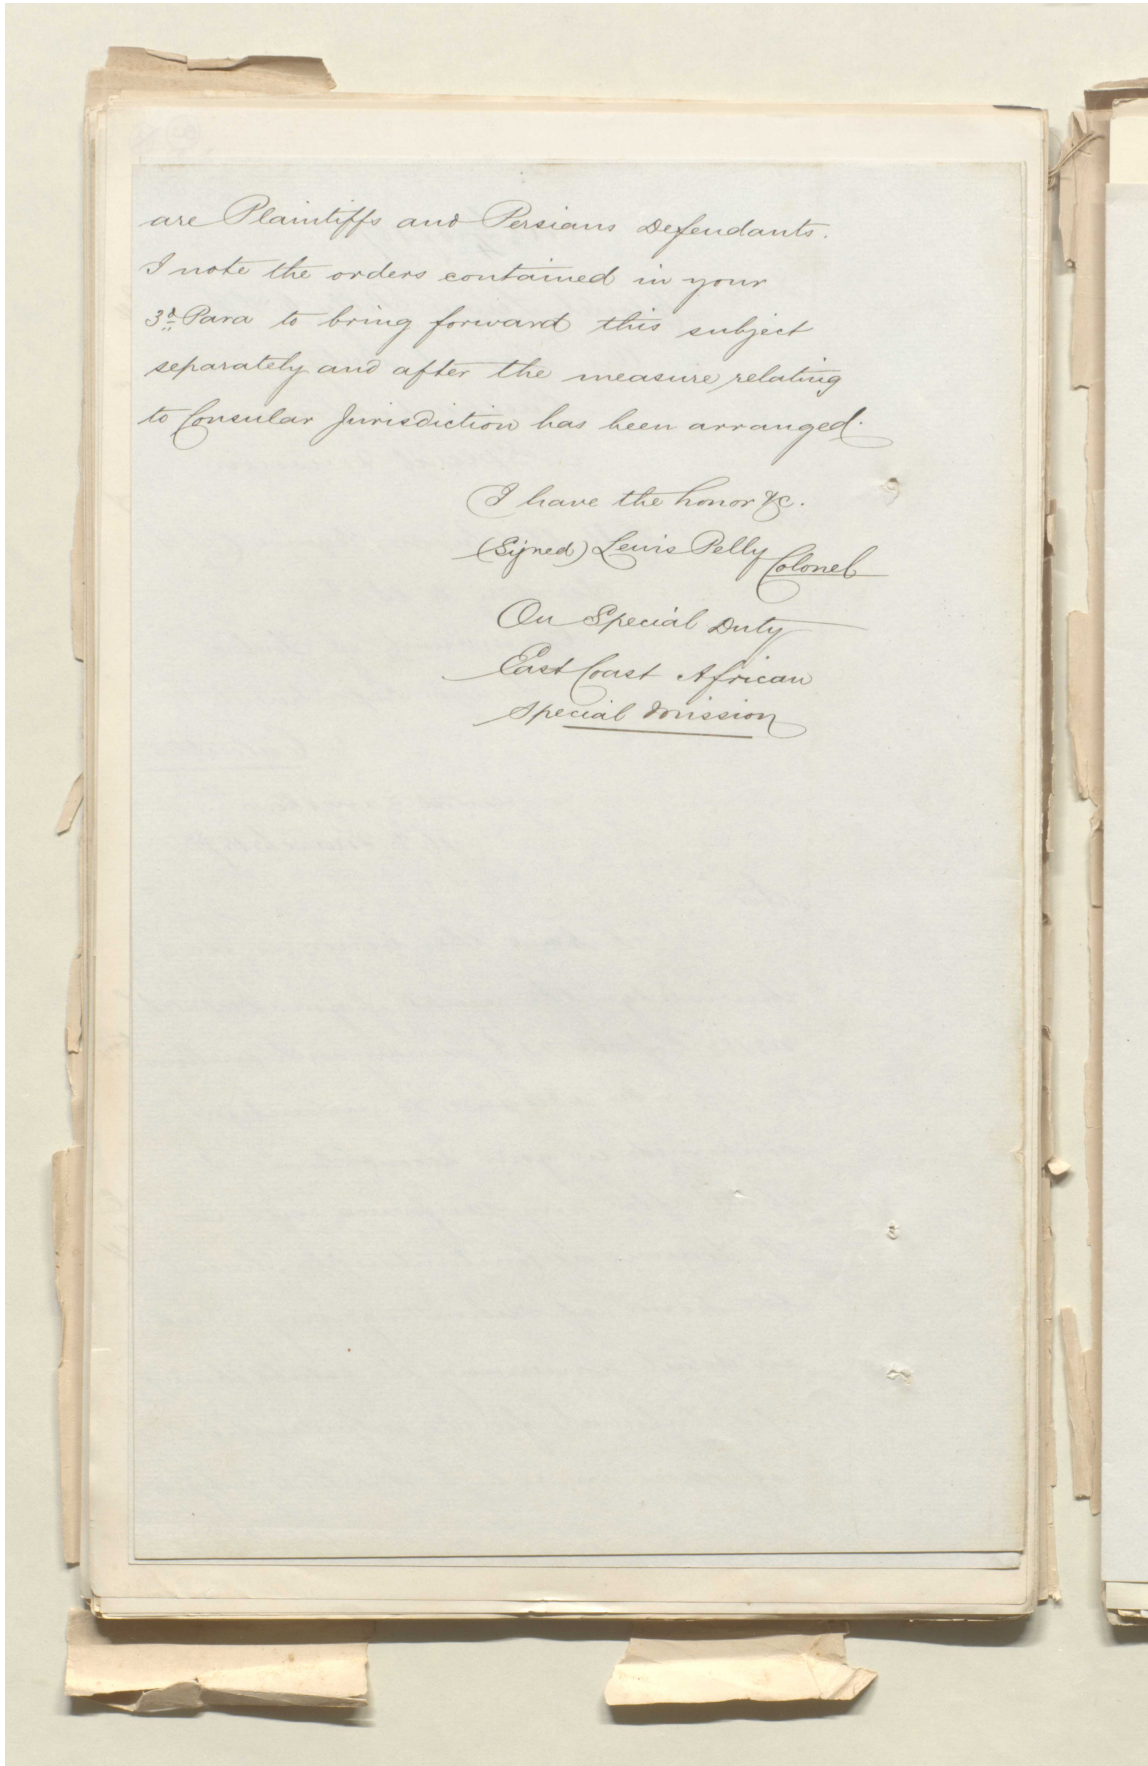 are Plaintiffs and Persians Defendants.
I note the orders contained in your
3d Para to bring forward this subject
separately and after the measure relating
to Consular Jurisdiction has been arranged.
I have the honor &c.
(Signed) Lewis Pelly Colonel
On Special Duty
East Coast African
Special Mission